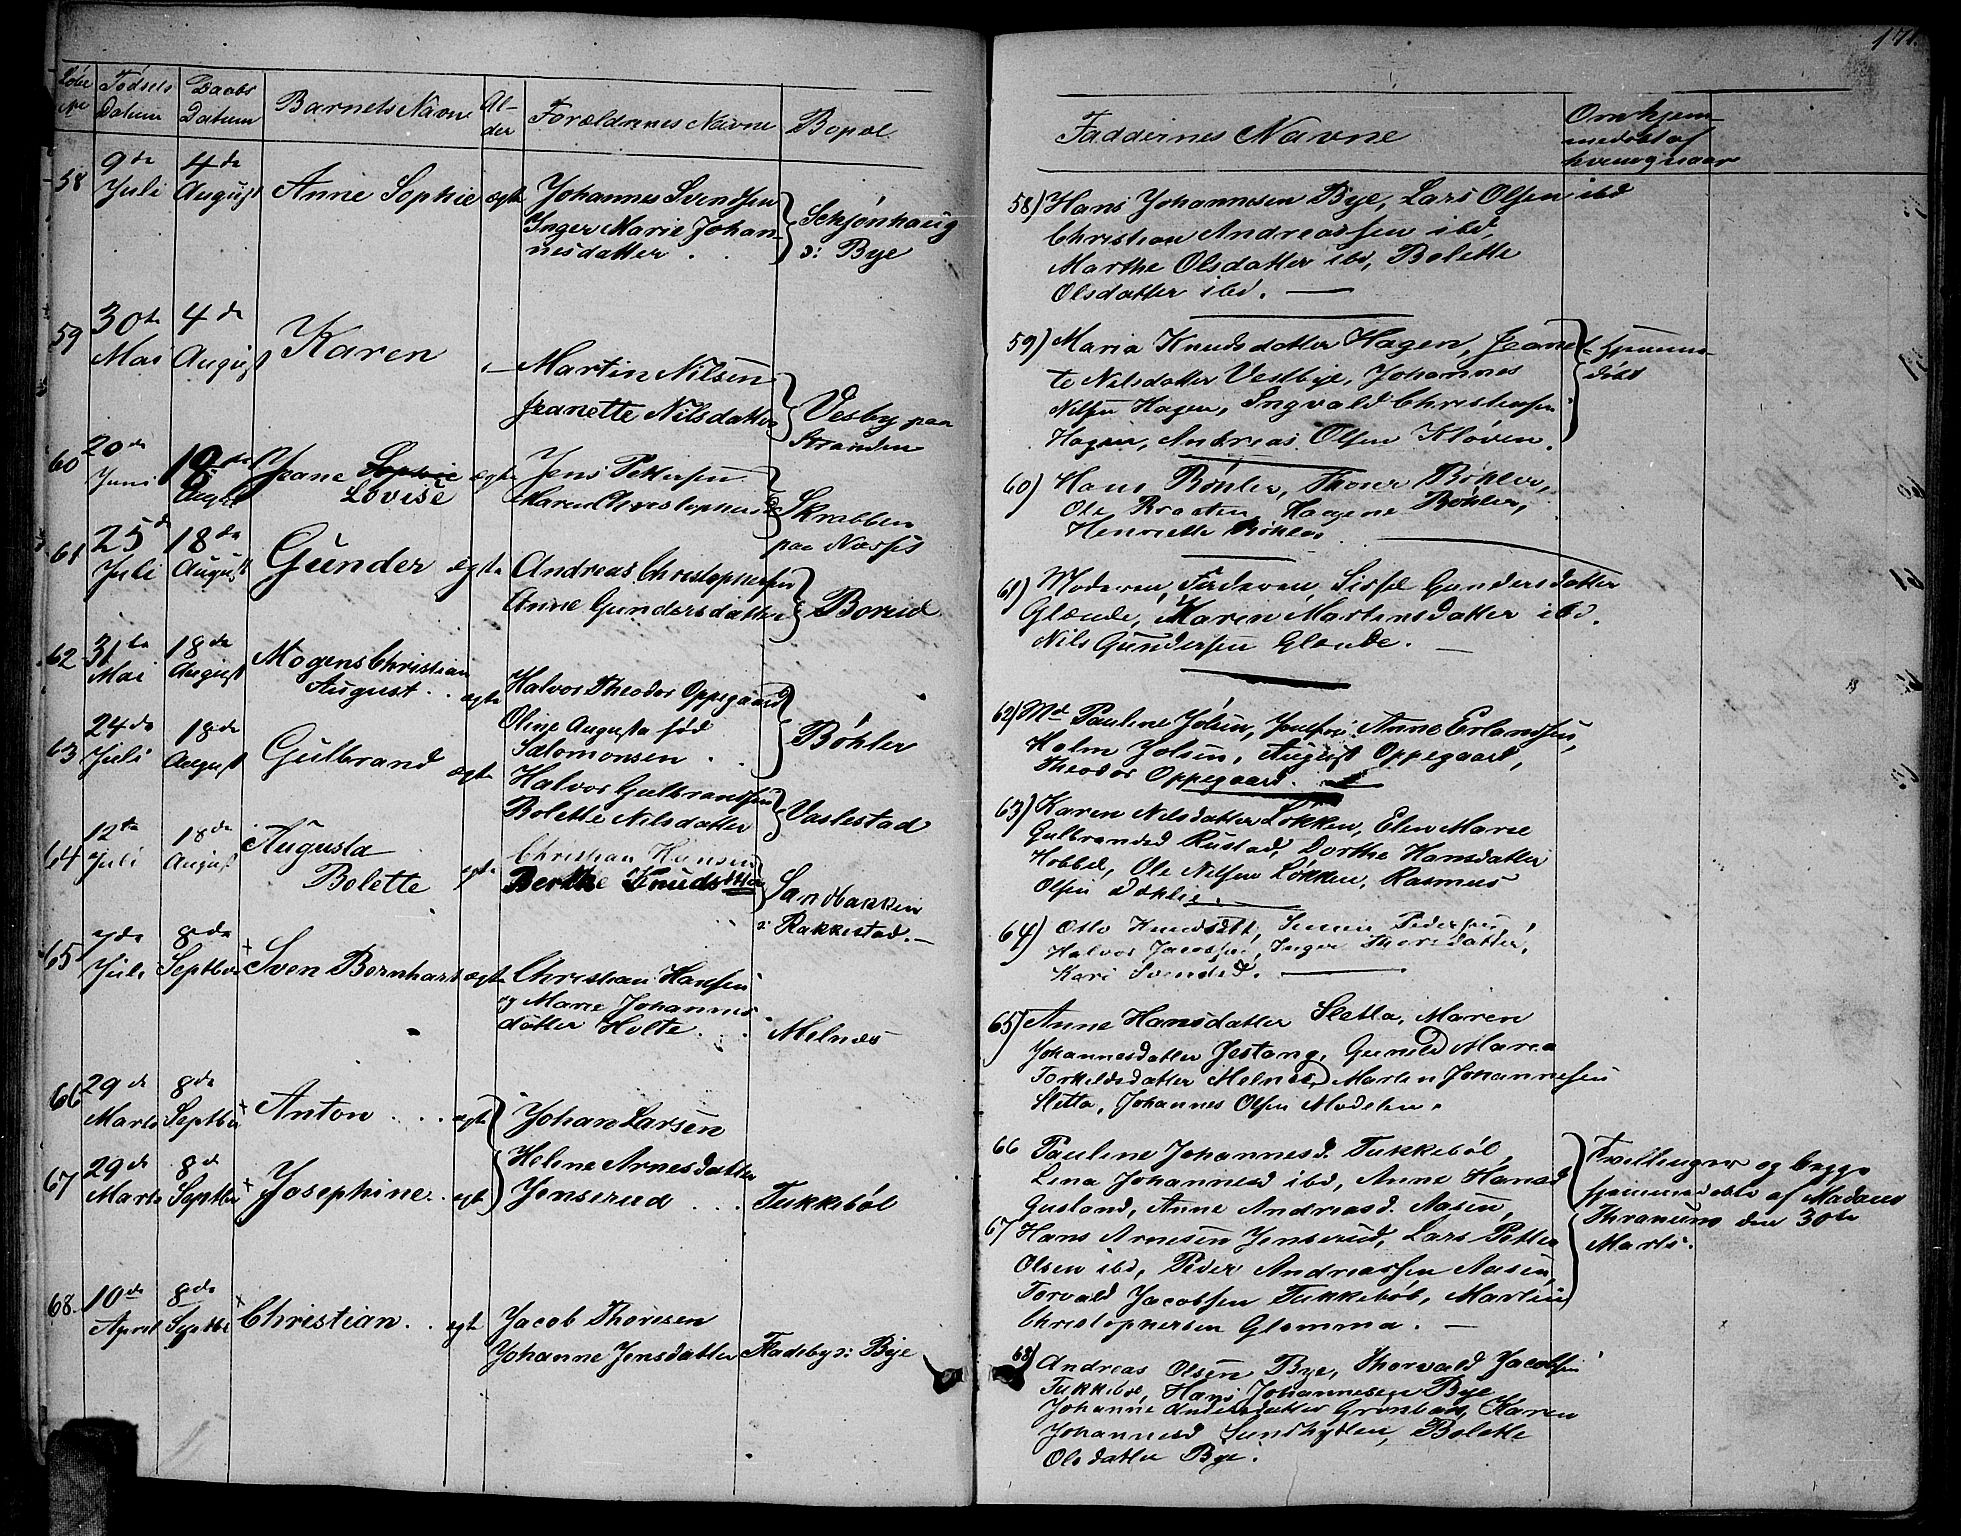 171.
Løbe No
Fødsels Datum
Daabs Datum
Barnets Navne
Al-der
Forældrenes Navne
Bopæl
58
9de Juli
4de August
Anne Sophie
ægte
Johannes Svendsen
Inger Marie Johan-
nesdatter
Schjønhaug
o: Bye
59
30te Mai
4de August
Karen
Martin Nilsen
Jeanette Nilsdatter
Vesby paa
Stranden
60
20de Juni
18de Augst
Jeane Sophie
Lovise
ægte
Jens Pettersen
Maren Christophersd
Skrabben
paa Næsset
61
25de Juli
18de August
Gunder
ægte
Andreas Christophersen
Anne Gundersdatter
Borud
62
31te Mai
18de August
Mogens Christian
August
ægte
Halvor Theodor Oppegaard
Oline Augusta fød
Salomonsen
Bøhler
63
24de Juli
18de August
Gulbrand
ægte
Halvor Gulbrandsen
Bolette Nilsdatter
Vaslestad
64
12te Juli
18de August
Augusta
Bolette
ægte
Christian Hansen
Berthe Knudsdtter
Sandbakken
i Rakkestad.
65
7de Juli
8de Septbr
Sven Bernhart
ægte
Christian Hansen
og Marie Johannes
datter Holte
Melnæs
66
29de Marts
8de Septbr
Anton
ægte
Johan Larsen
Helene Arnesdatter
67
29de Marts
8de Septbr
Josephine
ægte
Jenserud
Tukkebøl
68.
10de April
8de Septbr
Christian
ægte
Jacob Thoresen
Johanne Jensdatter
Fladeby o: Bye
Faddernes Navne
Om hjem-
medøbt af
hvem og naar
58) Hans Johannesen Bye, Lars Olsen ibd
Christian Andreassen ibd,
Marthe Olsdatter ibd, Bolette
Olsdatter ibd.
59) Maria Knudsdatter Hagen, Jeanet-
te Nilsdatter Vestbye, Johannes
Nilsen Hagen, Ingvald Christensen
Hagen, Andreas Olsen Kløven.
hjemme-
døbt
60) Hans Bøhler, Thoner Bøhler,
Ole Braaten, Hagene Bøhler,
Henriette Bøhler
61) Moderen, Faderen, Sissel Gundersdatter
Glænde, Maren Martinsdatter ibd.
Nils Gundersen Glænde.
62) Md Pauline Jølsen, Jomfrue Anne Erlandsen,
Holm Jølsen, August Oppegaard,
Theodor Oppegaard.
63) Karen Nilsdatter Løkken, Elen Marie
Gulbrandsd Rustad, Dorthe Hansdatter
Hobbel, Ole Nilsen Løkken, Rasmus
Olsen Døhlie.
64) Otto Knudsdtt, Pedersen,
Halvor Jacobsen, Inger Thorsdatter,
Kari Svendsd.
65) Anne Hansdatter Sletta, Maren
Johannesdatter Jestang, Gunild Maria
Torkeldsdatter Melnes, Martin Johannesen
Sletta, Johannes Olsen
66 Pauline Johannesd. Tukkebøl,
Lina Johannesd ibd, Anne Hansd
Gusland, Anne Andreasd. Aasen,
67 Hans Arnesen Jenserud, Lars Petter
Olsen ibd, Peder Andreassen Aasen,
Torvald Jacobsen Tukkebøl, Martin
Christophersen Glomma.
Tvillinger og begge
hjemmedøbte af Madam
Thranum den 30te
Marts.
68) Andreas Olsen Bye, Thorvald Jacobsen
Tukkebøl, Hans Johannesen Bye
Johanne Andersdatter Grønbæk, Karen
Johannesd Sundhytten, Bolette
Olsdatter Bye.